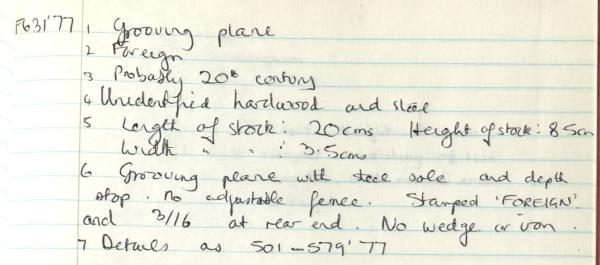 F631'77 1 Grooving plane
2 Foreign
3 Probably 20th century
4 Unidentified hardwood and steel
5 Length of stock: 20cms Height of stock: 8.5cm
Width " " : 3.5cms
6 Grooving plane with steel sole and depth
stop. No adjustable fence. Stamped 'FOREIGN'
and 3/16 at rear end. No wedge or iron.
7 Details as 501-579'77